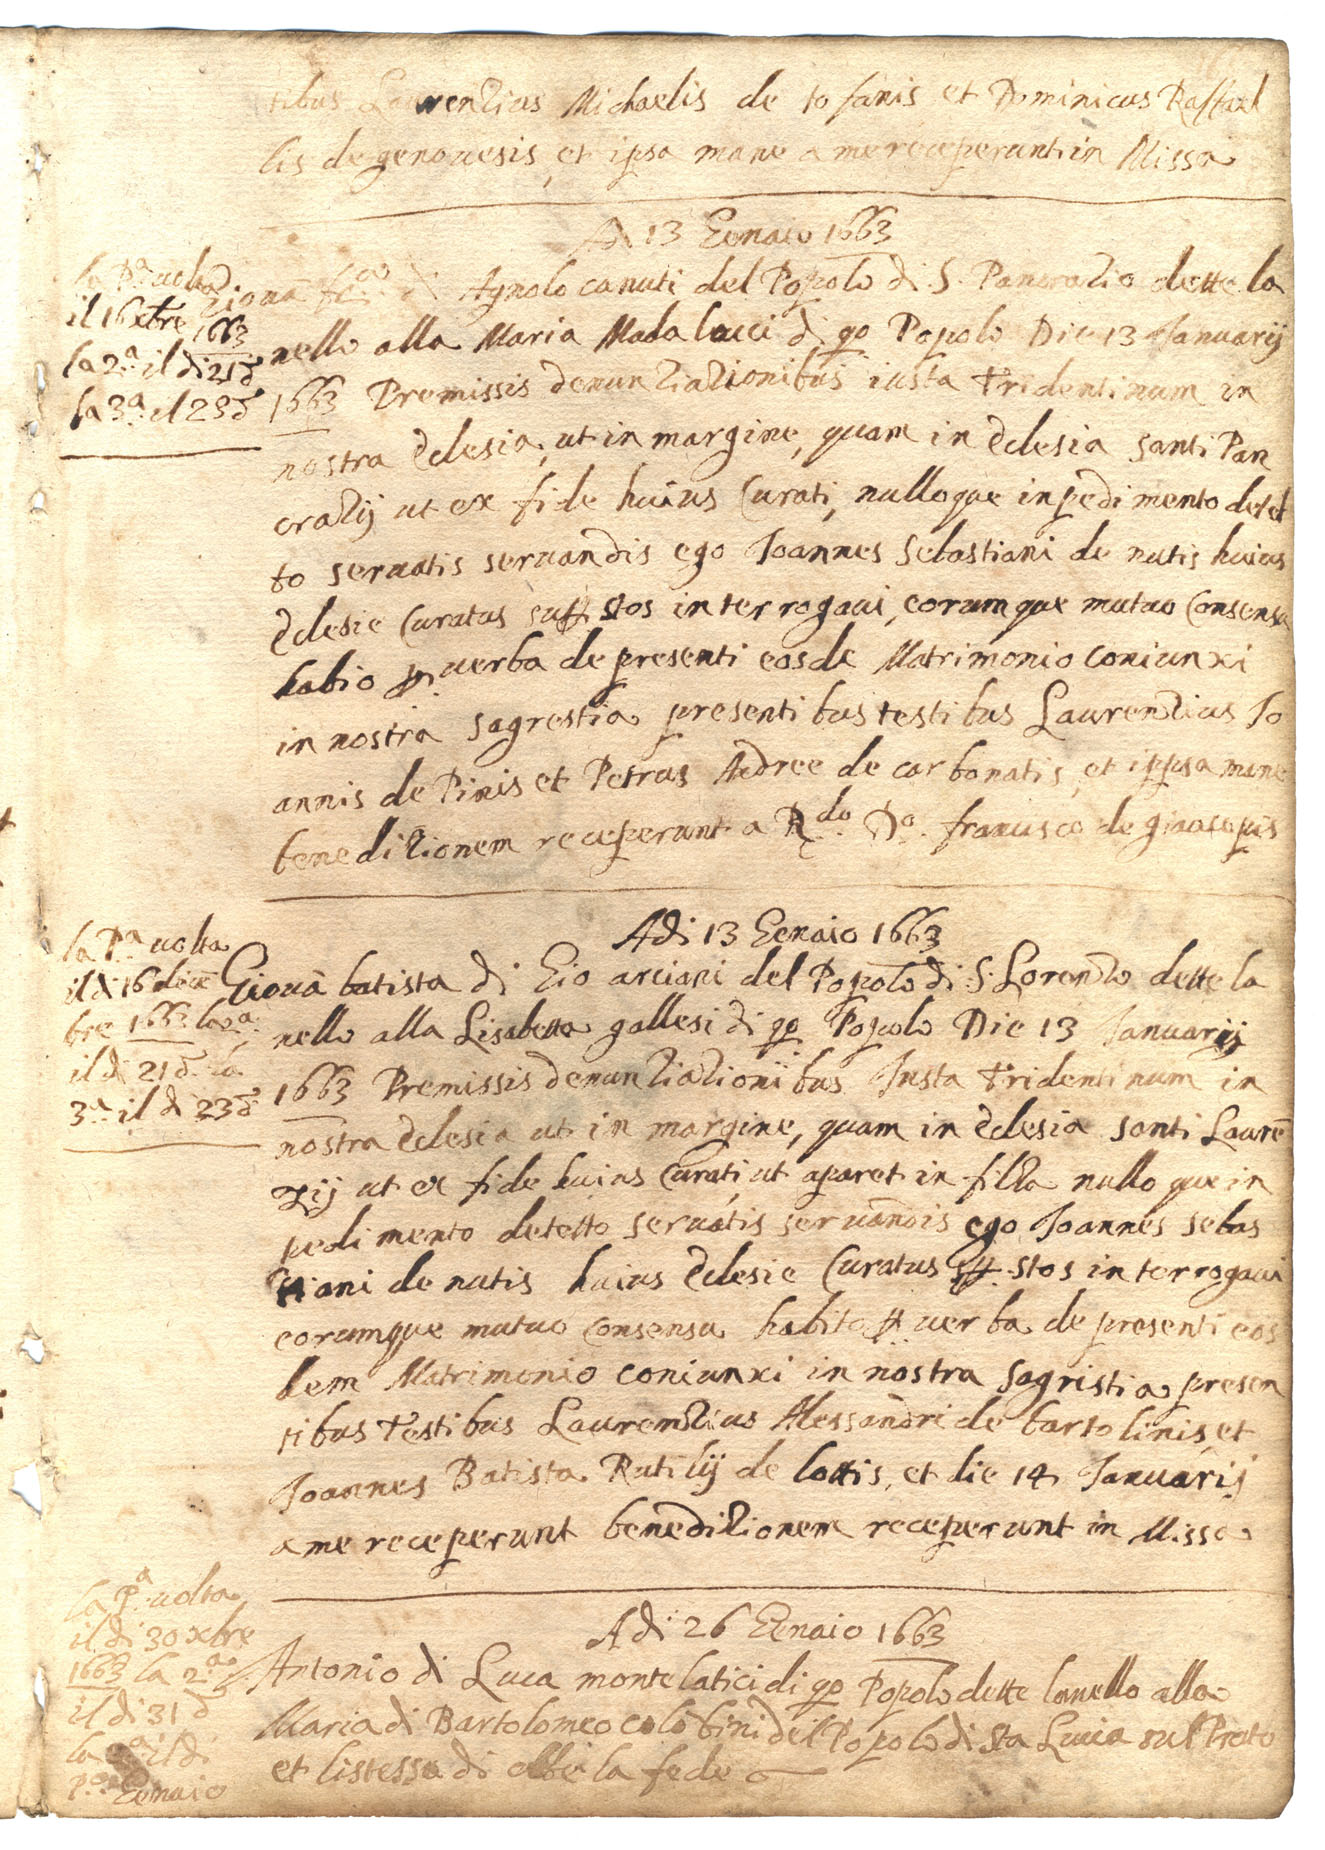 tibus Laurenzius Michaelis de tofanis et Dominicus Raffael
lis de genouesis, et ipsa mane a me receperunt in Missa
Adi 13 Genaio 1663
la Pa uolta
il 16 xbre 1663
la 2a il di 21 d
la 3a il 23 d
di Agnolo canuti del Popolo di S. Pancrazio dette la
nello alla Maria Mada lucci di qo Popolo Die 13 Januarij
1663 Premissis denunziazionibus iusta Tridentinum in
nostra Eclesia, ut in margine, quam in Eclesia santi Pan
crazij ut ex fide huius Curati, nulloque inpedimento detet
to seruatis seruandis ego Joannes Sebastiani de nutis huius
Eclesie Curatus stos interrogaui, eorumque mutuo Consensu
habio p uerba de presenti eosde Matrimonio coniunxi
in nostra sagrestia presentibus testibus Laurenzius Jo
annis de Pinis et Petrus Adree de carbonatis, et ippsa mane
benedizionem receperunt a Rdo Do francisco de giacopis
Adi 13 Genaio 1663
la Pa uolta
il di 16 dice
bre 1663 la 2a
il di 21 d. la
3a il di 23 d
Giouã batista di Gio arciani del Popolo di S. Lorenzo dette la
nello alla Lisabetta gallesi di qo Popolo Die 13 Januarij
1663 Premissis denunziazionibus Justa Tridentinum in
nostra Eclesia ut in margine, quam in Eclesia santi Laurẽ
zij ut ex fide huius Curati ut aparet in filza nullo que in
pedimento detetto seruatis seruandis ego Joannes sebas
tiani de nutis huius Eclesie Curatus stos interrogaui
eorumque mutuo Consensu habito p uerba de presenti eos
dem Matrimonio coniunxi in nostra Sagristia presen
tibus Testibus Laurenzius Alessandri de bartolinis et
Joannes Batista Rutilij de lottis, et die 14 Januarij
a me receperunt benedizionem receperunt in Missa
Adi 26 Genaio 1663
la Pa uolta
il di 30 xbre
1663 la 2a
il di 31 d
la il di
po Genaio
Antonio di Luca montelatici di qo Popolo dette lanello alla
Maria di Bartolomeo colõbini del Popolo di Sta Lucia sul Prato
et listesso di ebbe la fede